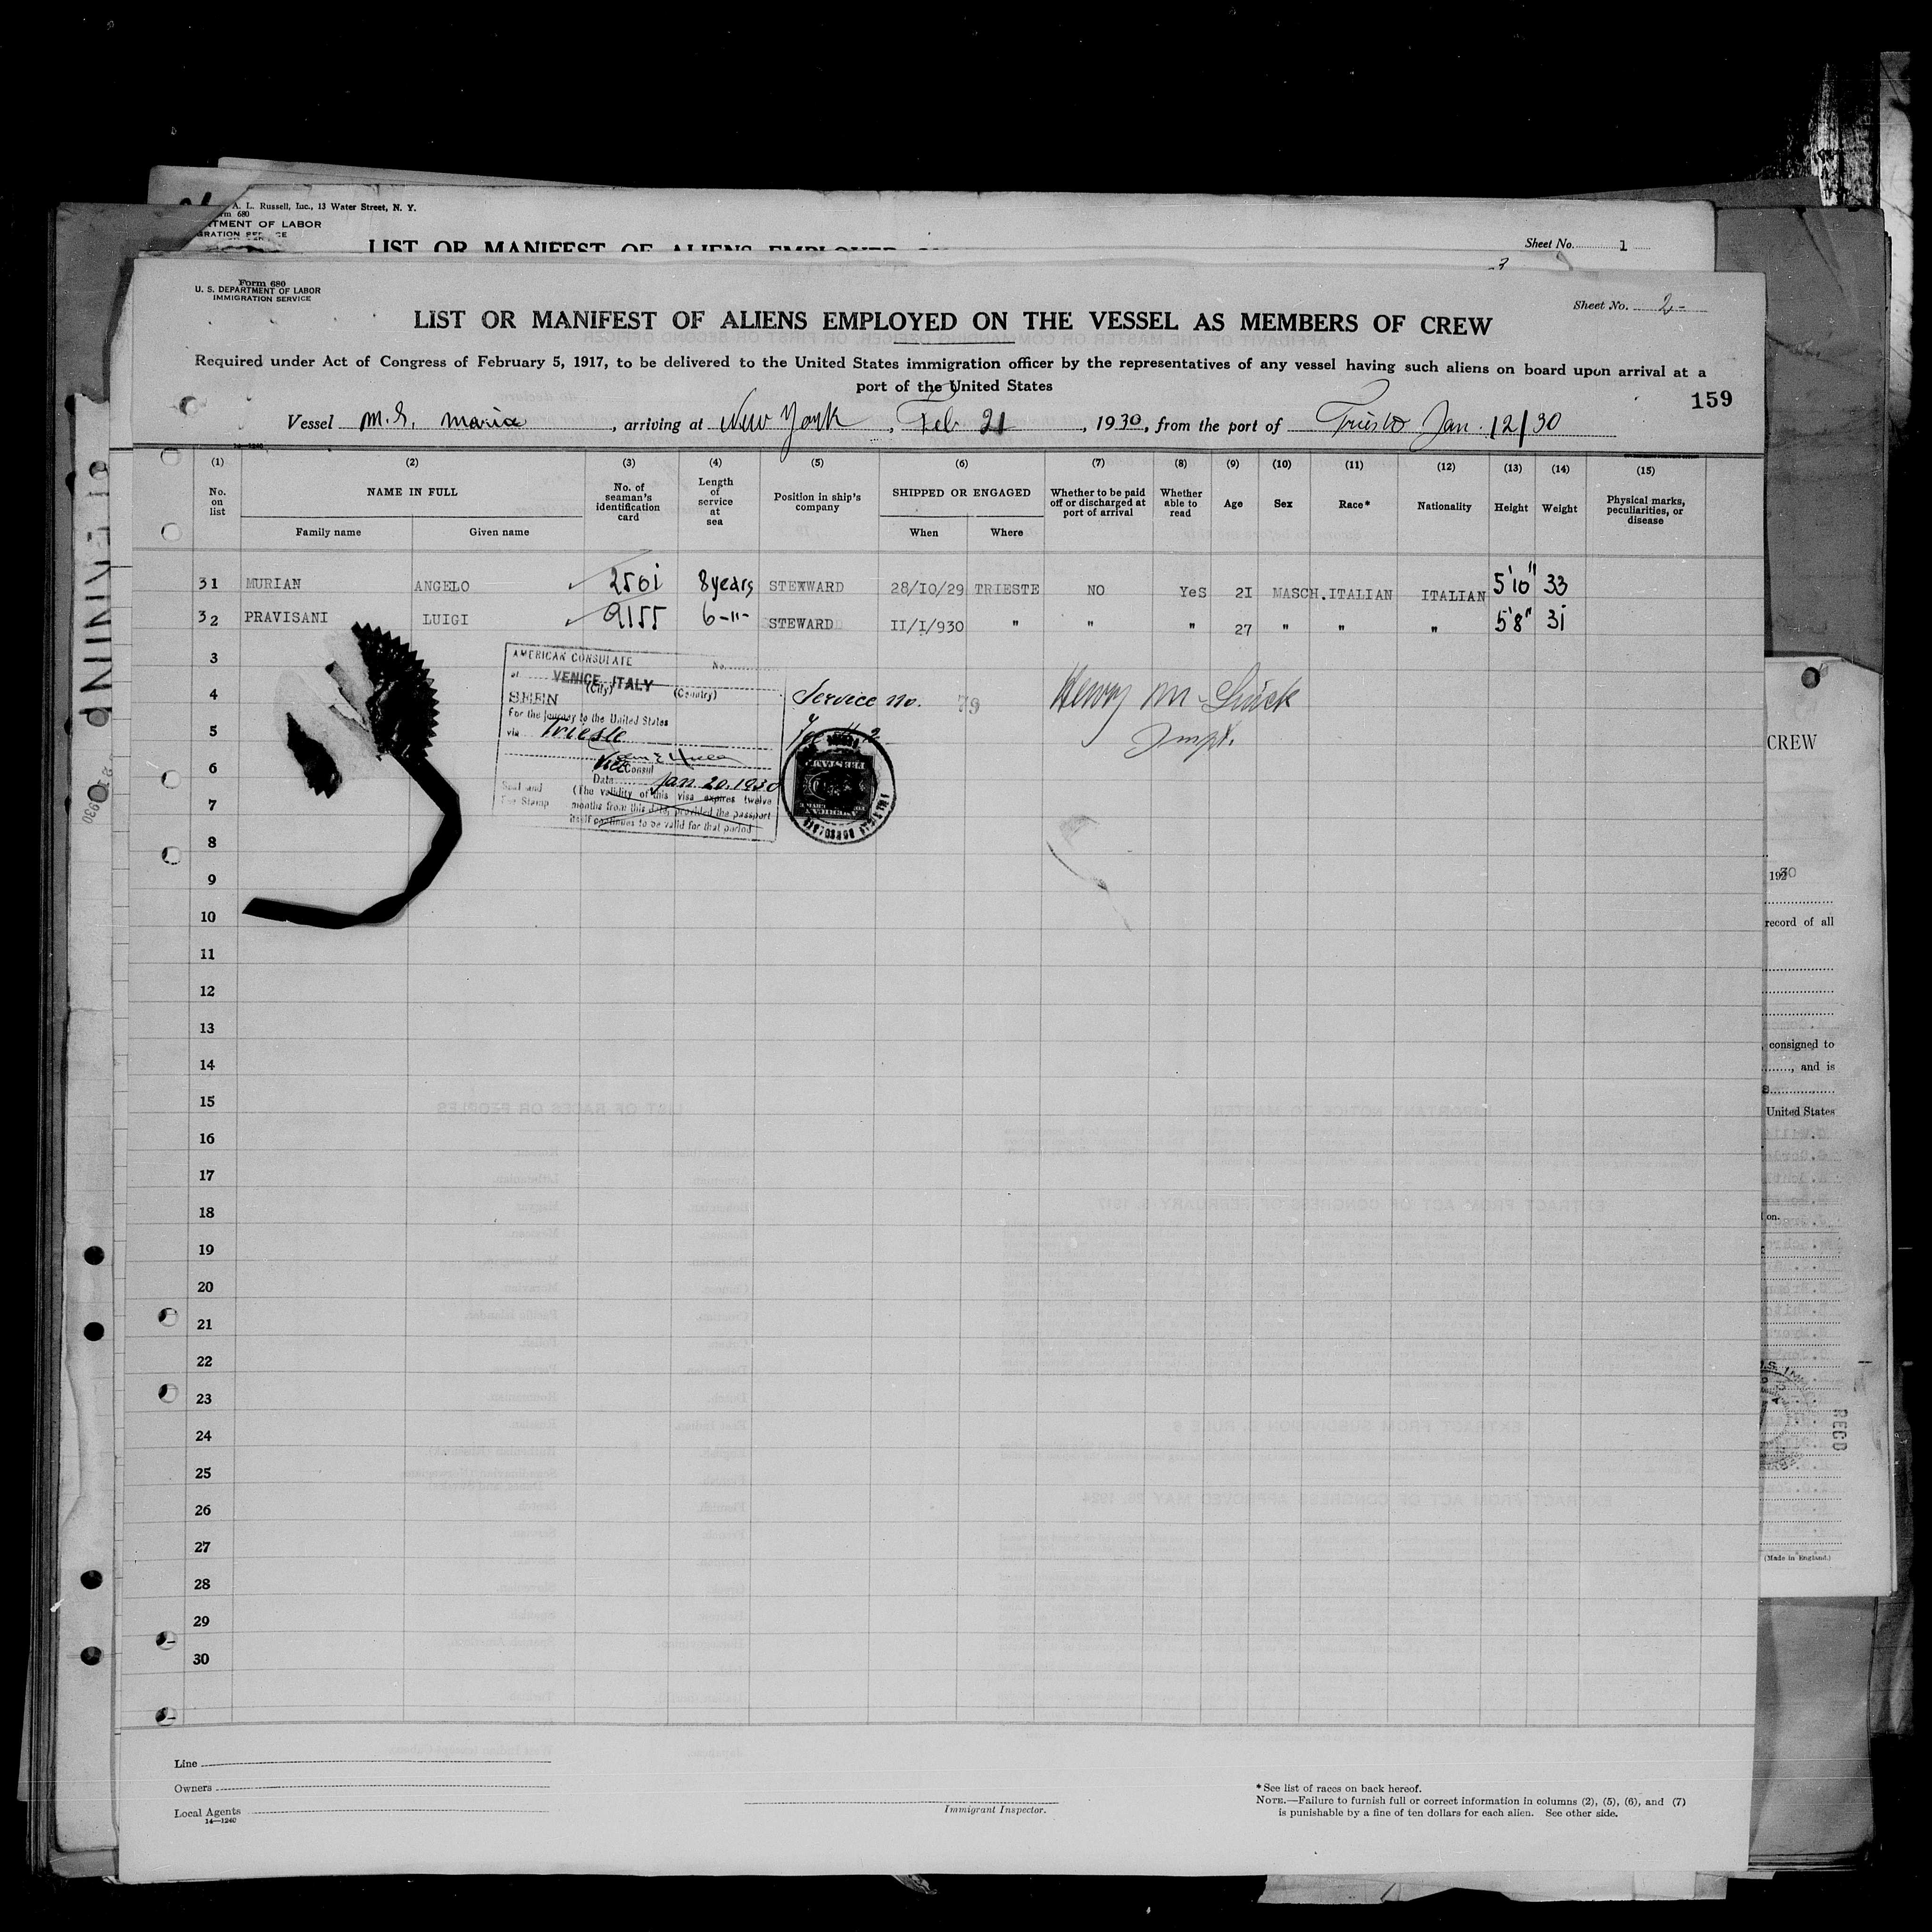 A. L. Russell, Inc., 13 Water Street, N. Y.
LIST OR MANIFEST OF ALIENS EMPLOYED
Sheet No. 1
Form 680
U. S. DEPARTMENT OF LABOR
IMMIGRATION SERVICE
Sheet No. 2
LIST OR MANIFEST OF ALIENS EMPLOYED ON THE VESSEL AS MEMBERS OF CREW
Required under Act of Congress of February 5, 1917, to be delivered to the United States immigration officer by the representatives of any vessel having such aliens on board upon arrival at a
port of the United States
159
Vessel M.S. Maria, arriving at New York, Feb 21, 1930, from the port of Trieste Jan. 12/30
14—1240
(1) (2) (3) (4) (5) (6) (7) (8) (9) (10) (11) (12) (13) (14) (15)
No. on list NAME IN FULL No. of seaman's identification card Length of service at sea Position in ship's company SHIPPED OR ENGAGED Whether to be paid off or discharged at port of arrival Whether able to read Age Sex Race* Nationality Height Weight Physical marks, peculiarities, or disease
Family name Given name When Where
31 MURIAN ANGELO 2501 8 years STEWARD 28/10/29 TRIESTE NO YeS 2I MASCH. ITALIAN ITALIAN 5'10" 33
32 PRAVISANI LUIGI 9155 6-"- STEWARD II/I/930 " " " 27 " " " 5'8" 31
3
4
5
6
7
8
9
10
11
12
13
14
15
16
17
18
19
20
21
22
23
24
25
26
27
28
29
30
AMERICAN CONSULATE
No.
at VENICE, ITALY
(City) (Country)
SEEN
For the journey to the United States
via Trieste
Vice Consul
Date Jan. 20, 1930
Seal and Fee Stamp
(The validity of this visa expires twelve
months from this date, provided the passport
itself continues to be valid for that period
Service no. 79
Henry M
Line
Owners
Local Agents
14—1240
Immigrant Inspector.
*See list of races on back hereof.
NOTE.—Failure to furnish full or correct information in columns (2), (5), (6), and (7)
is punishable by a fine of ten dollars for each alien. See other side.
CREW
record of all
consigned to
, and is
United States
(Made in England.)
RECD